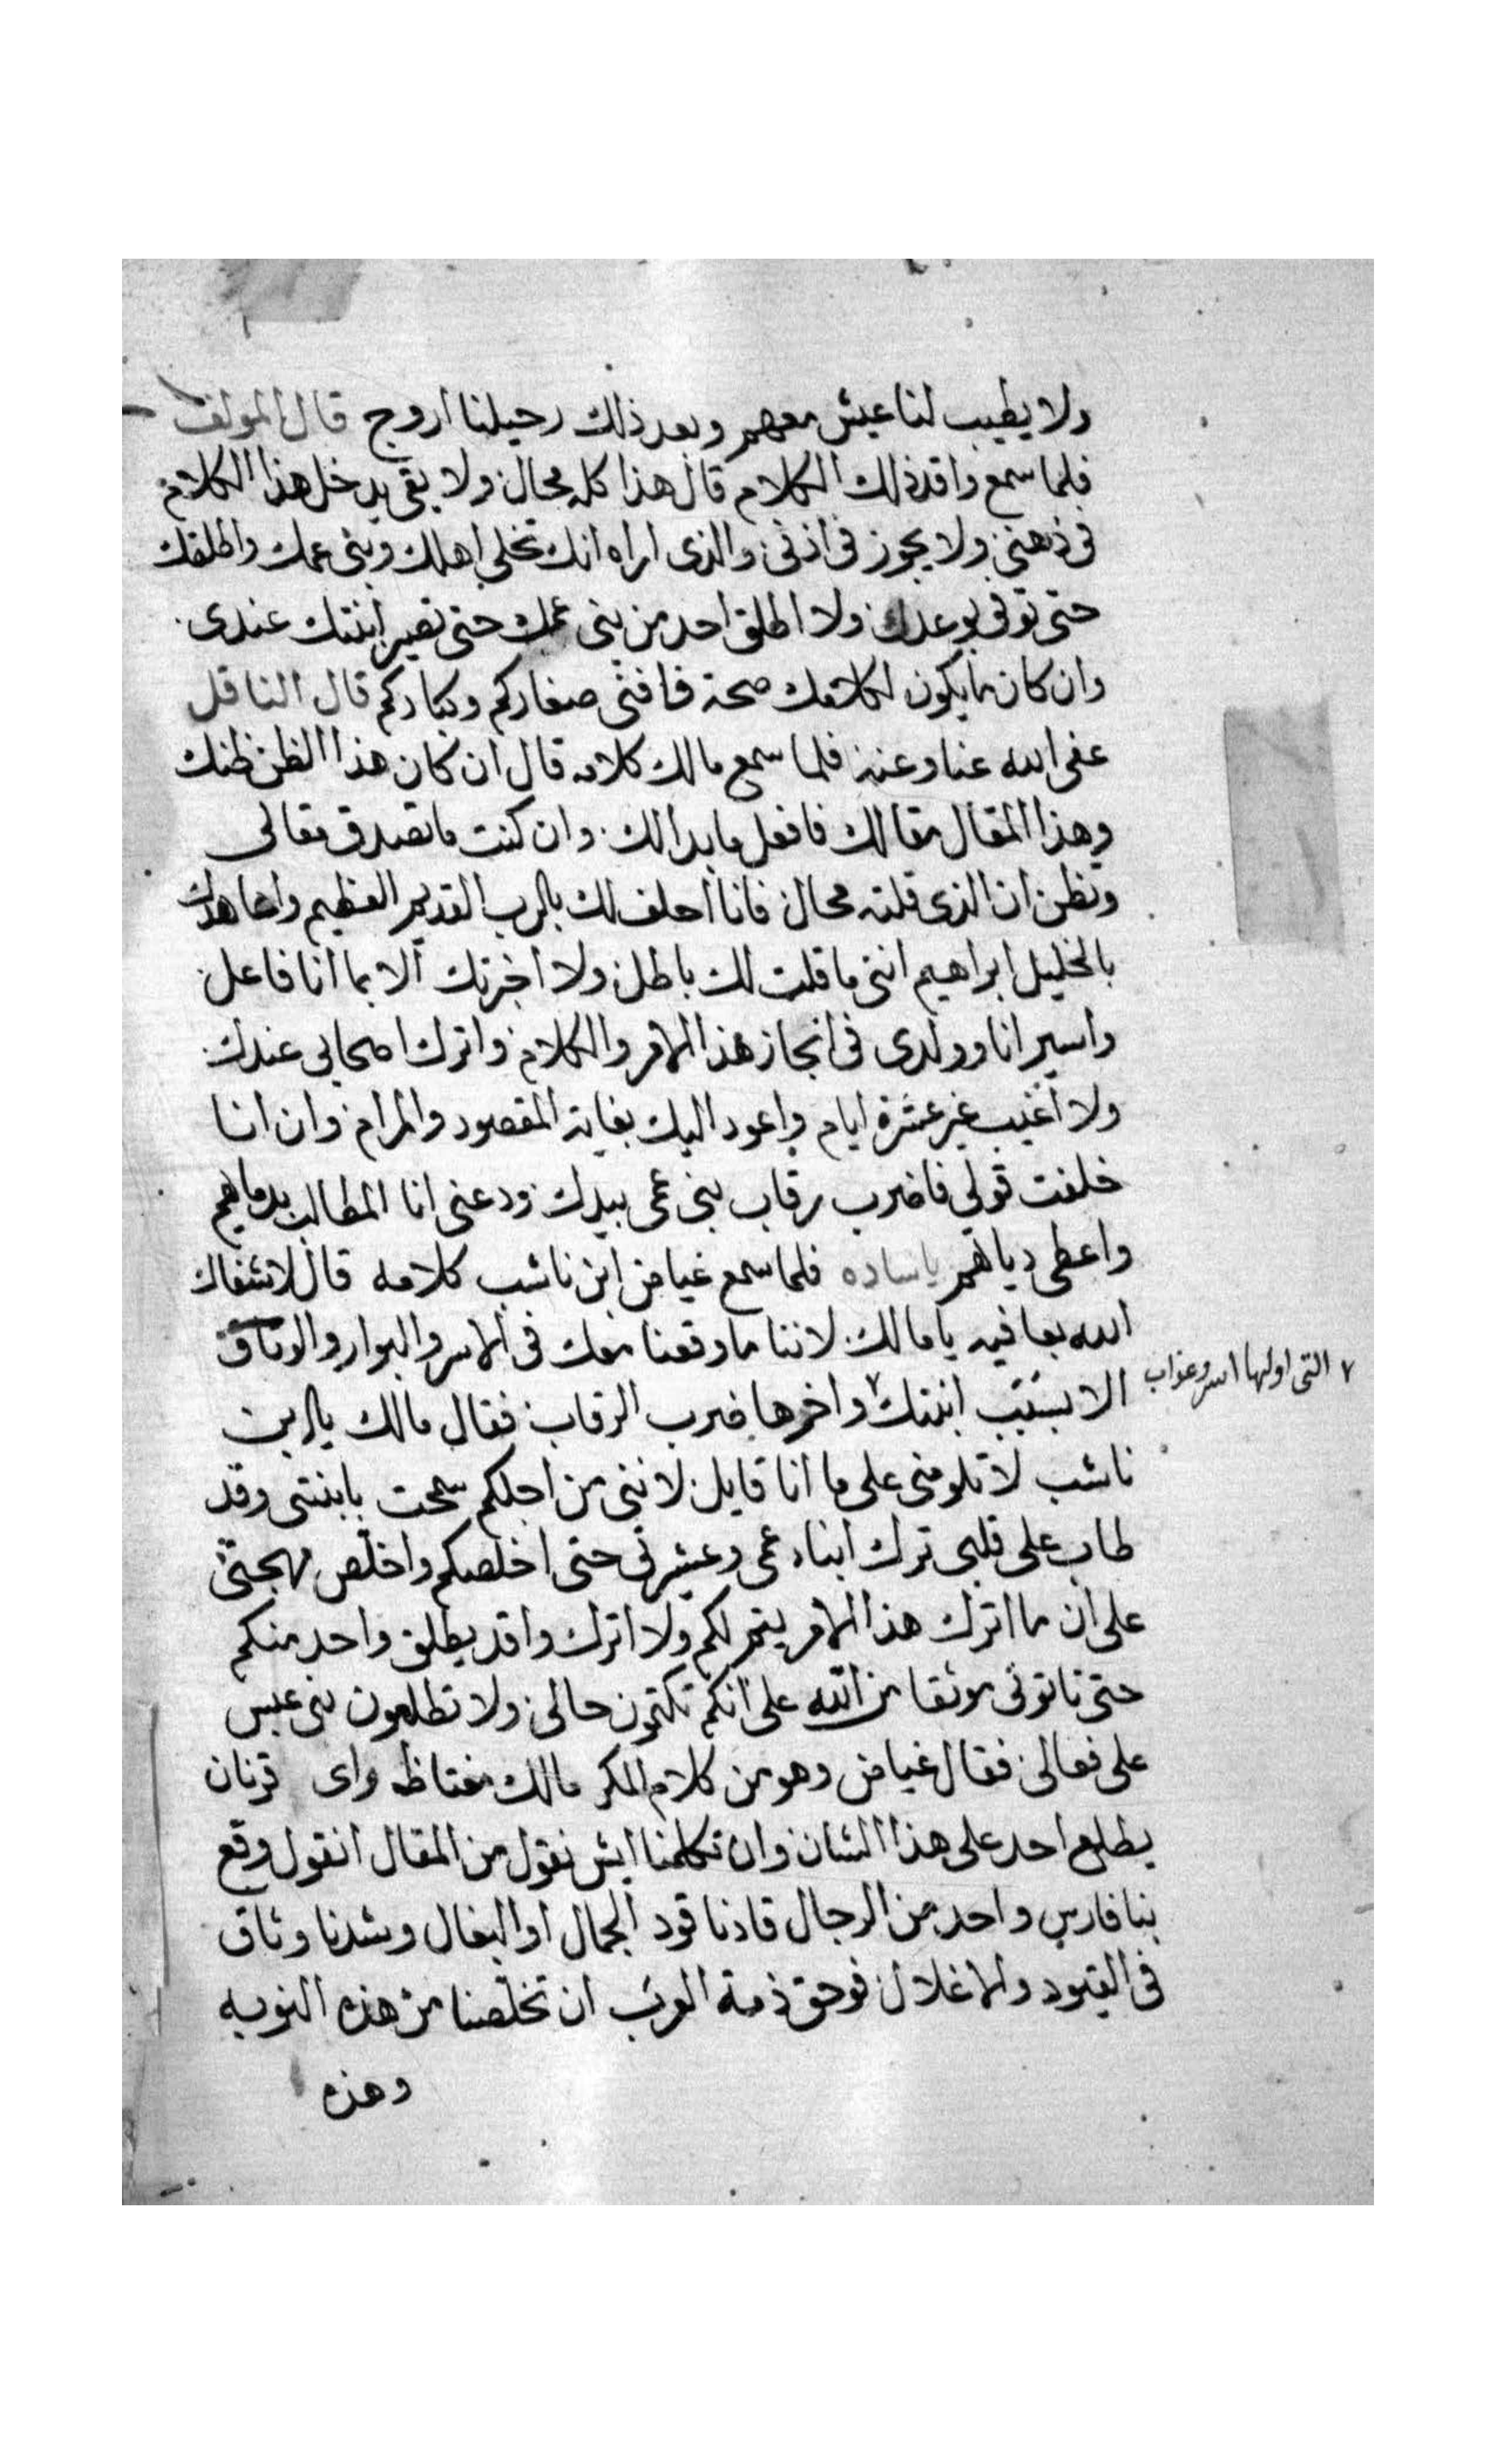 ولا يطيب لنا عيش معهم وبعد ذلك رحيلنا اروج قال المولف
فلما سمع واقد ذلك الكلام قال هذا كله محال ولا بقى يدخل هذا الكلام
فى ذهنى ولا يجوز فى اذنى والذى اراه انك تخلى اهلك وبنى عمك واطلقك
حتى توفى بوعدك ولا اطلق احد من بنى عمك حتى تصير ابنتك عندى
وان كان ما يكون لكلامك صحة فافنى صغاركم وكباركم قال الناقل
عفى الله عنا وعنه فلما سمع مالك كلامه قال ان كان هذا الظن ظنك
وهذا المقال مقالك فافعل ما بدالك وان كنت ما تصدق مقالى
وتظن ان الذى قلته محال فانا احلف لك بالرب القديم العظيم واعاهدك
بالخليل ابراهيم اننى ما قلت لك باطل ولا اخبرتك الا بما انا فاعل
واسير انا وولدى فى انجاز هذا الامر والكلام واترك اصحابى عندك
ولا اغيب غير عشرة ايام واعود اليك بغاية المقصود والمرام وان انا
خلفت قولى فاضرب رقاب بنى عمى بيدك ودعنى انا المطالب بدماهم
واعطى دياتهم ياساده فلما سمع غياض ابن ناشب كلامه قال لا شفاك
الله بعافيه يا مالك لاننا ما وقعنا معك فى الاسر والبوار والوثاق
الا بسبب ابنتك ٧ واخرها ضرب الرقاب فقال مالك يا ابن
٧ التى اولها اسر وعذاب
ناشب لا تلومنى على ما انا قايل لاننى من اجلكم سمحت بابنتى وقد
طاب على قلبى ترك ابناء عمى وعشيرتى حتى اخلصكم واخلص مهجتى
على ان ما اترك هذا الامر يتم لكم ولا اترك واقد يطلق واحد منكم
حتى تاتونى موثقا من الله على انكم تكتمون حالى ولا تطلعون بنى عبس
على فعالى فقال غياض وهو من كلام المكر مالك مغتاظ واى قرنان
يطلع احد على هذا الشان وان تكلمنا ايش نقول من المقال انقول وقع
بنا فارس واحد من الرجال قادنا قود الجمال او البغال وشدنا وثاق
فى القيود والاغلال فوحق ذمة العرب ان تخلصنا من هذه النوبه
وهذه